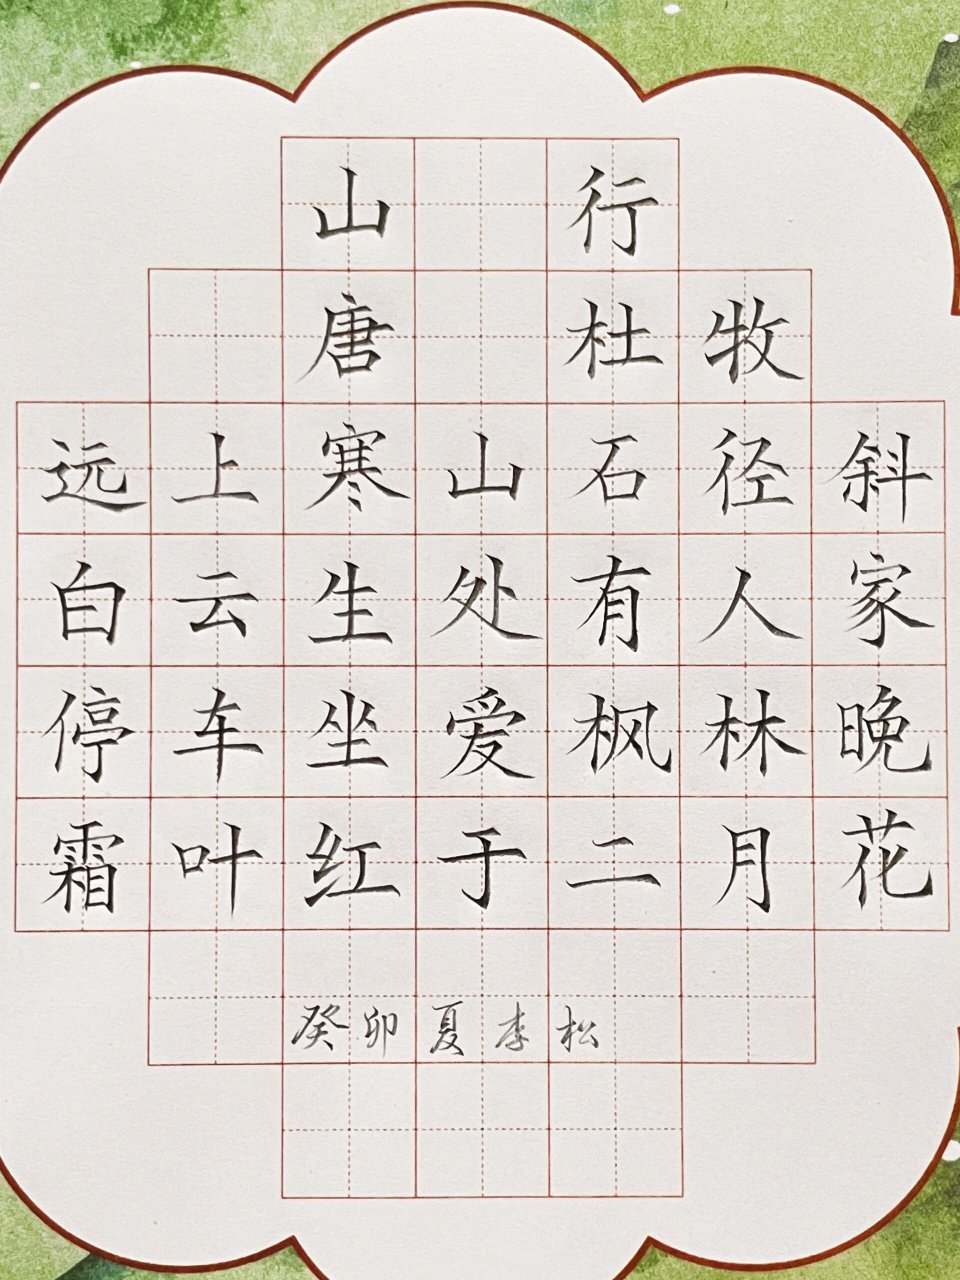 山行
唐 杜牧
远上寒山石径斜
白云生处有人家
停车坐爱枫林晚
霜叶红于二月花
癸卯夏李松